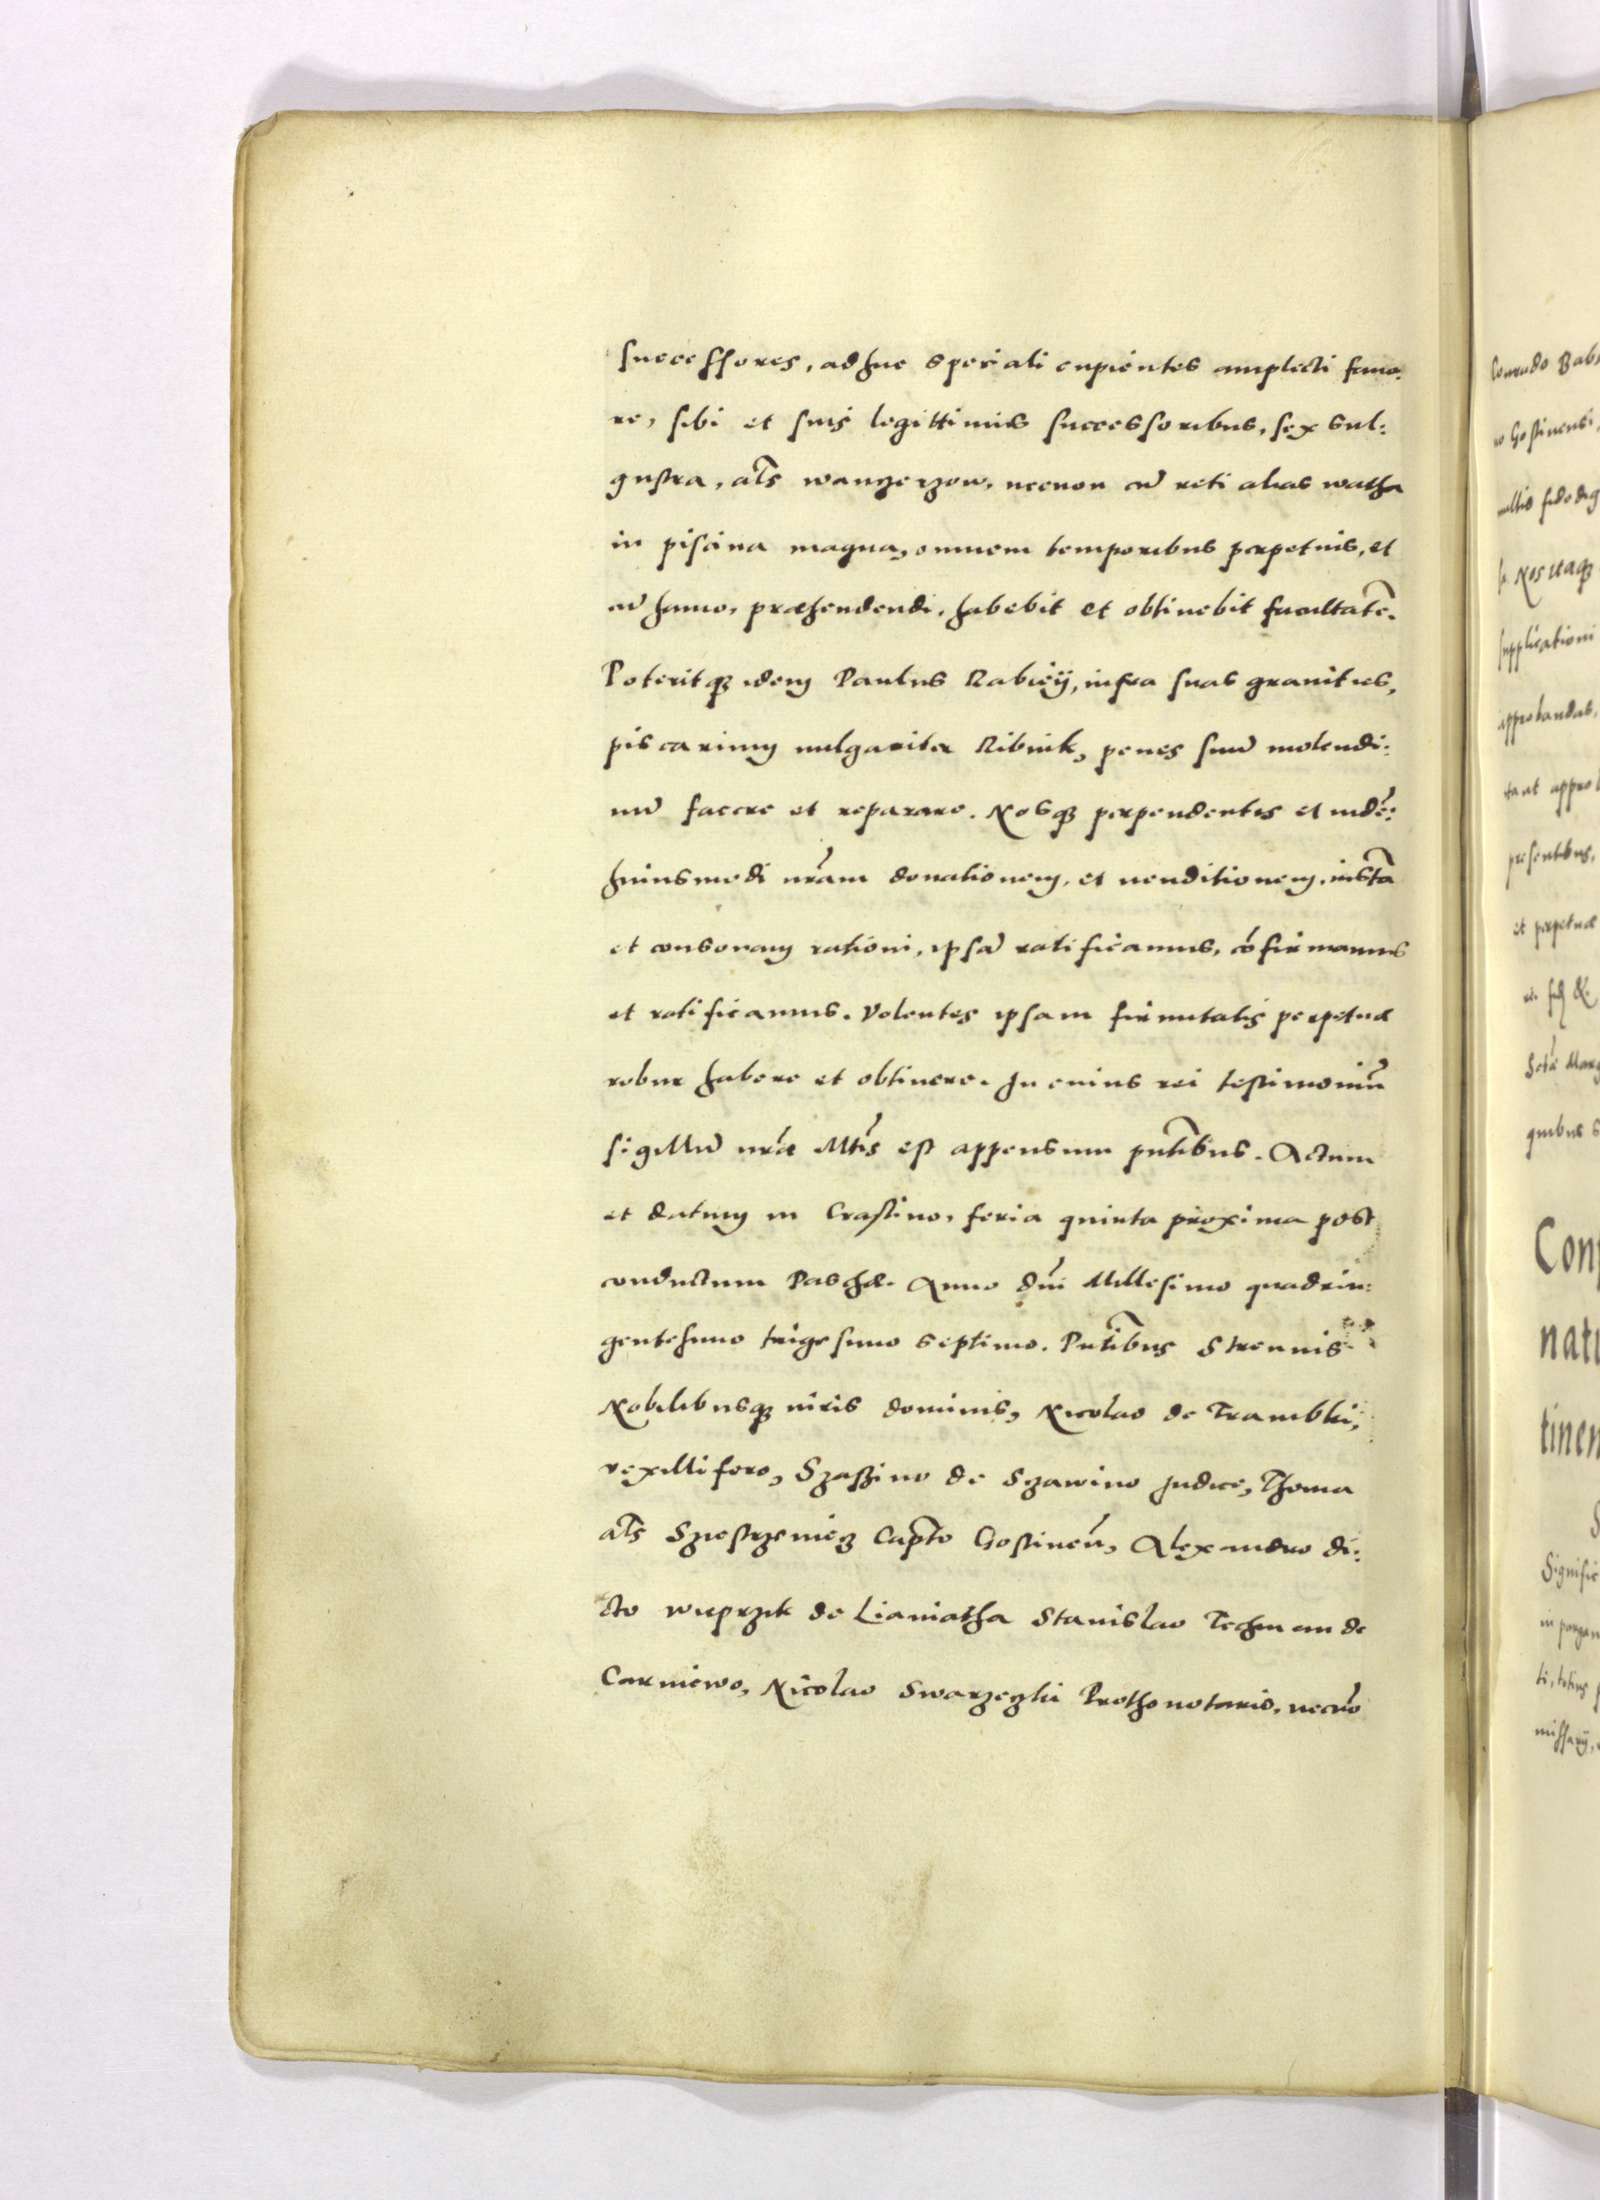 successores, adhuc speciali cupientes amplecti fauo:
re, sibi et suis legittimis successoribus, sex sul:
gustra, als wanzerzow, necnon cũ reti alias watha
in piscina magna, omnem temporibus perpetuis, et
cũ hamo, præhendendi, habebit et obtinebit facultatẽ.
Poteritq3 idem Paulus Rabieÿ, infra suas granities,
piscarium uulgariter Ribnik, penes suũ molendi:
nũ facere et reparare. Nosq3 perpendentes et uidẽ:
huiusmodi nr̃am donationem, et uenditionem, iustã
et consonam rationi, ipsã ratificamus, cõfirmamus
et ratificamus. Volentes ipsam firmitatis perpetuæ
robur habere et obtinere. In cuius rei testimoniũ
sigillũ nr̃æ Mtis est appensum pñtibus. Actum
et datum in Crastino, feria quinta proxima post
conductum Paschæ. Anno dñi Millesimo quadrin:
gentesimo trigesimo septimo. Pñtibus Strenuis
Nobilibusq3 uiris dominis, Nicolao de Trambki,
vexillifero, Szassino de Szawino Judice, Thoma
als Sziestrzeniez Capto Gostineñ, Alexandro di:
cto wieprzik de Lianiatha Stanislao Techman de
Carniewo, Nicolao Swarzezki Prothonotario, necñõ
Conrado
ro Gostinensi,
multis fidedig
Nos itaq3
supplicationi
approbandas,
presentibus,
et perpetuæ
quibus
Signific